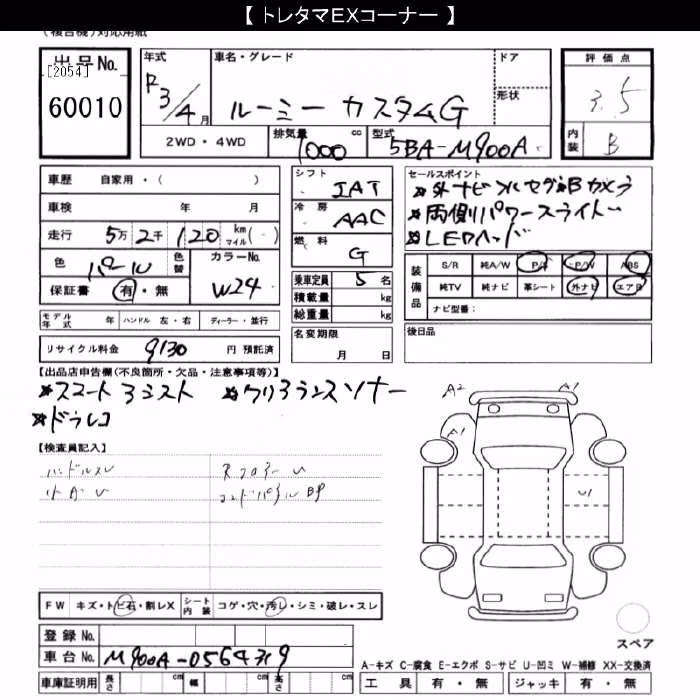 【 トレタマEXコーナー 】
(複合機)対応用紙
出品No.
[2054]
60010
年式 R3/4月
車名・グレード ルーミー カスタムG
ドア
形状
2WD・4WD
排気量 1000 cc
型式 5BA-M900A
評価点 3.5
内装 B
車歴 自家用・( )
車検 年 月
走行 5万2千120 km マイル(-)
色 パール
色替
カラーNo. W24
保証書 有・無
モデル年式 年 ハンドル 左・右 ディーラー・並行
リサイクル料金 9130 円 預託済
シフト IAT
冷房 AAC
燃料 G
乗車定員 5 名
積載量 kg
総重量 kg
名変期限
月 日
セールスポイント
*外ナビ フルセグ B カメラ
*両側パワースライドー
*LEDヘッド
装備品
S/R 純A/W P/S P/W ABS
純TV 純ナビ 革シート 外ナビ エアB
ナビ型番:
後日品
【出品店申告欄(不良箇所・欠品・注意事項等)】
*スマートアシスト *クリアランスソナー
*ドラレコ
【検査員記入】
ハンドルスレ
Rフロアー U
リヤ A・U
コンドパネル BP
A2 A1
A1
U1
FW キズ・トビ石・割レX シート内装 コゲ・穴・汚レ・シミ・破レ・スレ
登録No.
車台No. M900A-0564319
車庫証明用 長さ cm 幅 cm 高さ cm
スペア
A-キズ C-腐食 E-エクボ S-サビ U-凹ミ W-補修 XX-交換済
工具 有・無 ジャッキ 有・無